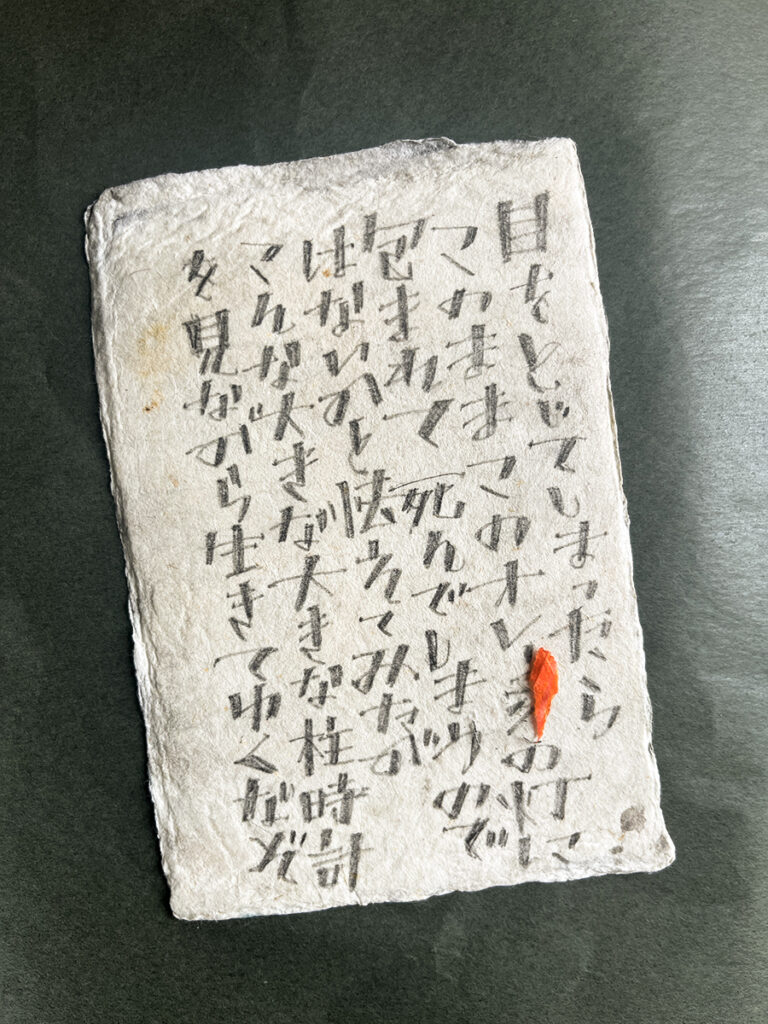 目をとじてしまったら
このままこのオレの灯に
包まれて死んでしまうので
はないかと怯えてみたが
こんな大きな大きな柱時計
を見ながら生きてゆくだぞ